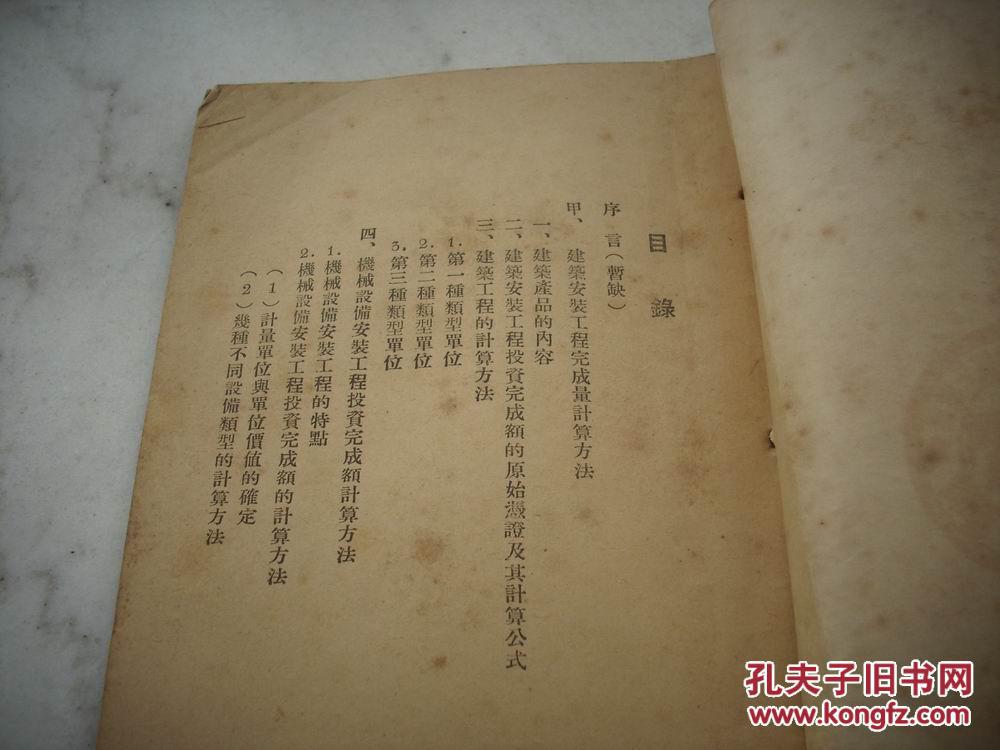 目錄
序言(暫缺)
甲、建築安裝工程完成量計算方法
一、建築產品的內容
二、建築安裝工程投資完成額的原始憑證及其計算公式
三、建築工程的計算方法
1.第一種類型單位
2.第二種類型單位
3.第三種類型單位
四、機械設備安裝工程投資完成額計算方法
1.機械設備安裝工程的特點
2.機械設備安裝工程投資完成額的計算方法
(1)計量單位與單位價值的確定
(2)幾種不同設備類型的計算方法
孔夫子旧书网
www.kongfz.com